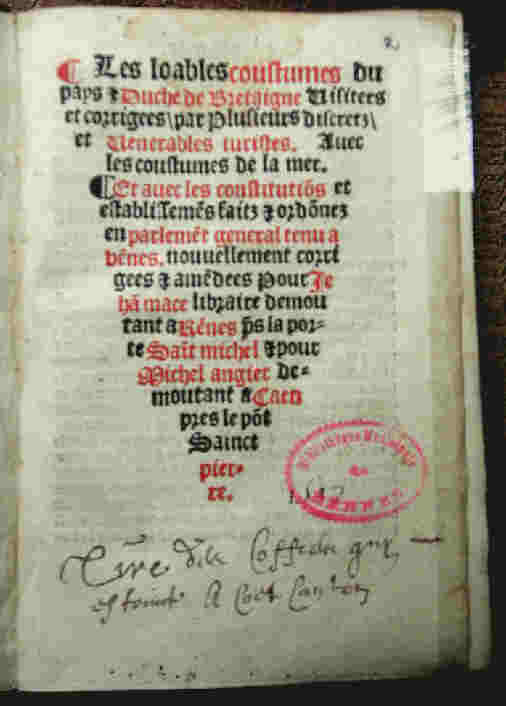 ¶ Les loables coustumes du
pays ⁊ Duche de Bretaigne Visitees
et corrigees \ par plusieurs discretz \
et Venerables iuristes. Auec
les coustumes de la mer.
¶ Et auec les constitutiōs et
establissemēs faitz ⁊ ordōnez
en parlemēt general tenu a
vēnes. nouuellement corri
gees ⁊ amēdees Pour Je
hā mace libraire demou
rant a Rēnes p̄s la por-
te Saīt michel ⁊ pour
Michel angier de-
mourant a Caen
pres le pōt
Sainct
pier-
re.
RENNES